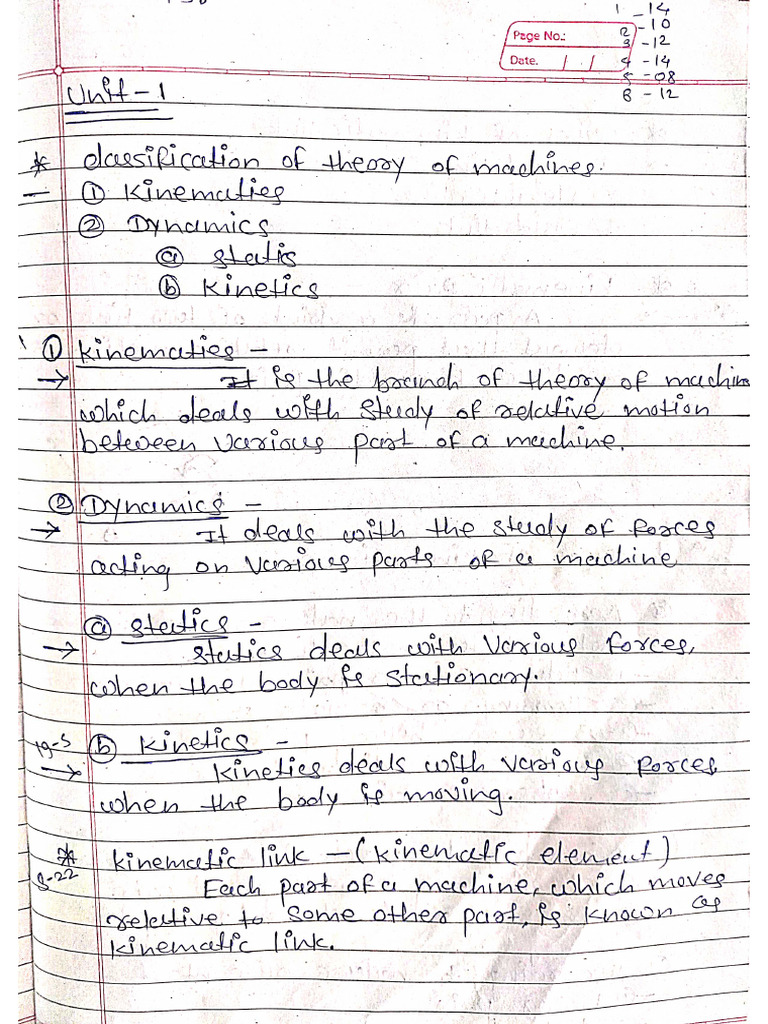 1 - 14
2 - 10
3 - 12
4 - 14
5 - 08
6 - 12
Page No.:
Date. / /
Unit - 1
* classification of theory of machines.
① Kinematics
② Dynamics
ⓐ statis
ⓑ Kinetics
① Kinematics -
→ It is the branch of theory of machine
which deals with study of relative motion
between various part of a machine.
② Dynamics -
→ It deals with the study of forces
acting on various parts of a machine
ⓐ statics -
→ statics deals with various forces,
when the body is stationary.
ⓑ Kinetics -
→ Kinetics deals with various forces
when the body is moving.
* Kinematic link - (Kinematic element)
S-22 Each part of a machine, which moves
relative to some other part, is known as
kinematic link.